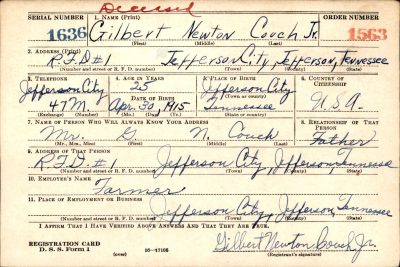 Deceased
SERIAL NUMBER 1. NAME (Print) ORDER NUMBER
1636 Gilbert Newton Couch Jr. 1563
(First) (Middle) (Last)
2. ADDRESS (Print)
R.F.D #1 Jefferson City, Jefferson, Tennessee
(Number and street or R. F. D. number) (Town) (County) (State)
3. TELEPHONE 4. AGE IN YEARS 5. PLACE OF BIRTH 6. COUNTRY OF CITIZENSHIP
Jefferson City 25 Jefferson City
DATE OF BIRTH (Town or county)
47M. Apr. 30, 1915 Tennessee U.S.A.
(Exchange) (Number) (Mo.) (Day) (Yr.) (State or country)
7. NAME OF PERSON WHO WILL ALWAYS KNOW YOUR ADDRESS 8. RELATIONSHIP OF THAT PERSON
Mr. G. N. Couch Father
(Mr., Mrs., Miss) (First) (Middle) (Last)
9. ADDRESS OF THAT PERSON
R.F.D. #1 Jefferson City, Jefferson, Tennessee
(Number and street or R. F. D. number) (Town) (County) (State)
10. EMPLOYER'S NAME
Farmer
11. PLACE OF EMPLOYMENT OR BUSINESS
Jefferson City, Jefferson, Tennessee
(Number and street or R. F. D. number) (Town) (County) (State)
I AFFIRM THAT I HAVE VERIFIED ABOVE ANSWERS AND THAT THEY ARE TRUE.
REGISTRATION CARD
D. S. S. Form 1 16—17105 Gilbert Newton Couch Jr.
(over) (Registrant's signature)